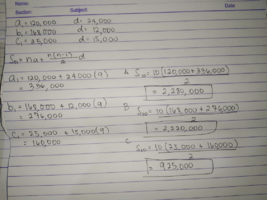 Name:
Section: Subject: Date
a. = 120,000 d = 24,000
b. = 168,000 d = 12,000
c. = 25,000 d = 15,000
a. = 120,000 + 24000 (9)
= 336,000
b. = 168,000 + 12,000 (9)
= 276,000
c. = 25,000 + 15,000 (9)
= 160,000
A S₁₀ = 10 (120,000 + 336,000)
2
= 2,280,000
B S₁₀ = 10 (168,000 + 276000)
2
= 2,220,000
C S₁₀ = 10 (25,000 + 160000)
2
= 925,000